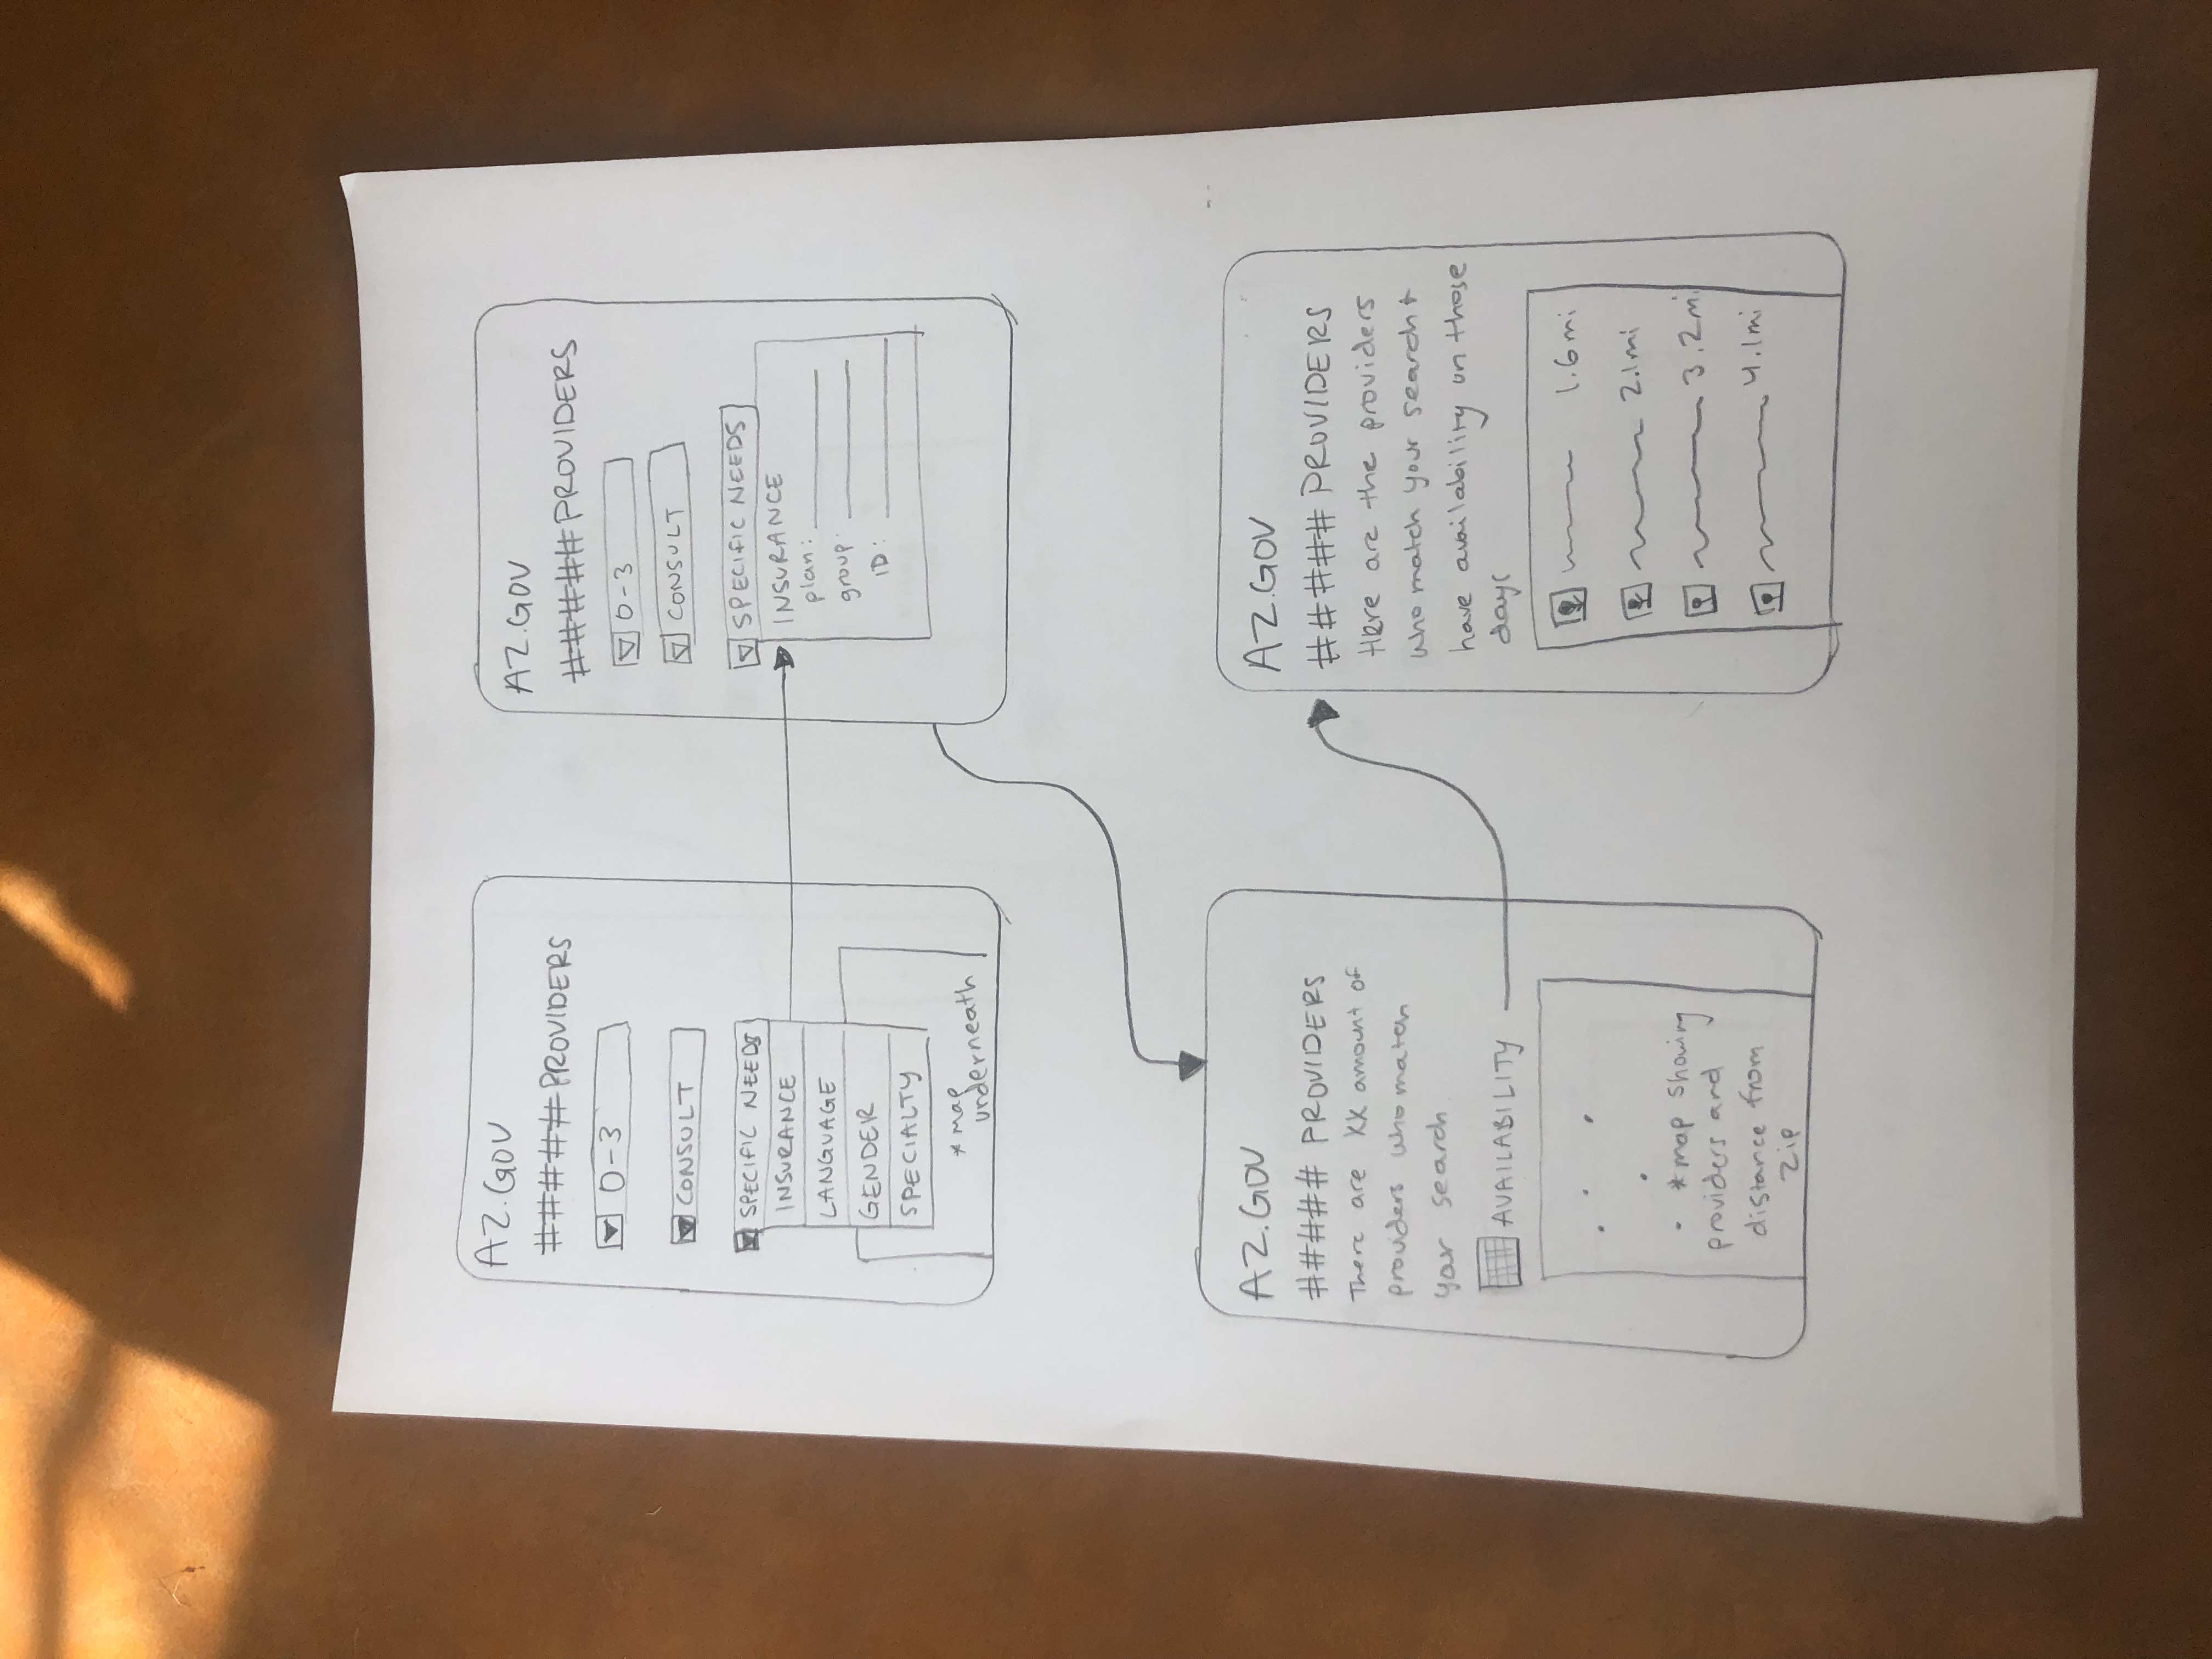 AZ.GOV
##### PROVIDERS
0-3
CONSULT
SPECIFIC NEEDS
INSURANCE
LANGUAGE
GENDER
SPECIALTY
* map
underneath
AZ.GOV
##### PROVIDERS
0-3
CONSULT
SPECIFIC NEEDS
INSURANCE
plan:
group:
ID:
AZ.GOV
##### PROVIDERS
There are XX amount of
providers who match
your search
AVAILABILITY
*map showing
providers and
distance from
zip
AZ.GOV
##### PROVIDERS
Here are the providers
who match your search +
have availability on those
days
1.6mi
2.1mi
3.2mi
4.1mi